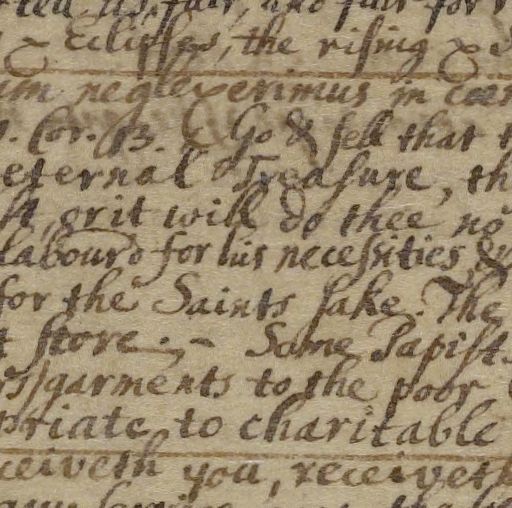 fair, and fair for
& Eclipses, the rising &
um neglexerimus in
Cor. 13. Go & sell that
eternal Treasure, th
st, or it will do thee no
labour'd for his necessities, &
for the Saints sake. The
t store. - Some Papists
rs garments to the poor
priate to charitable
ceiveth you, receiveth